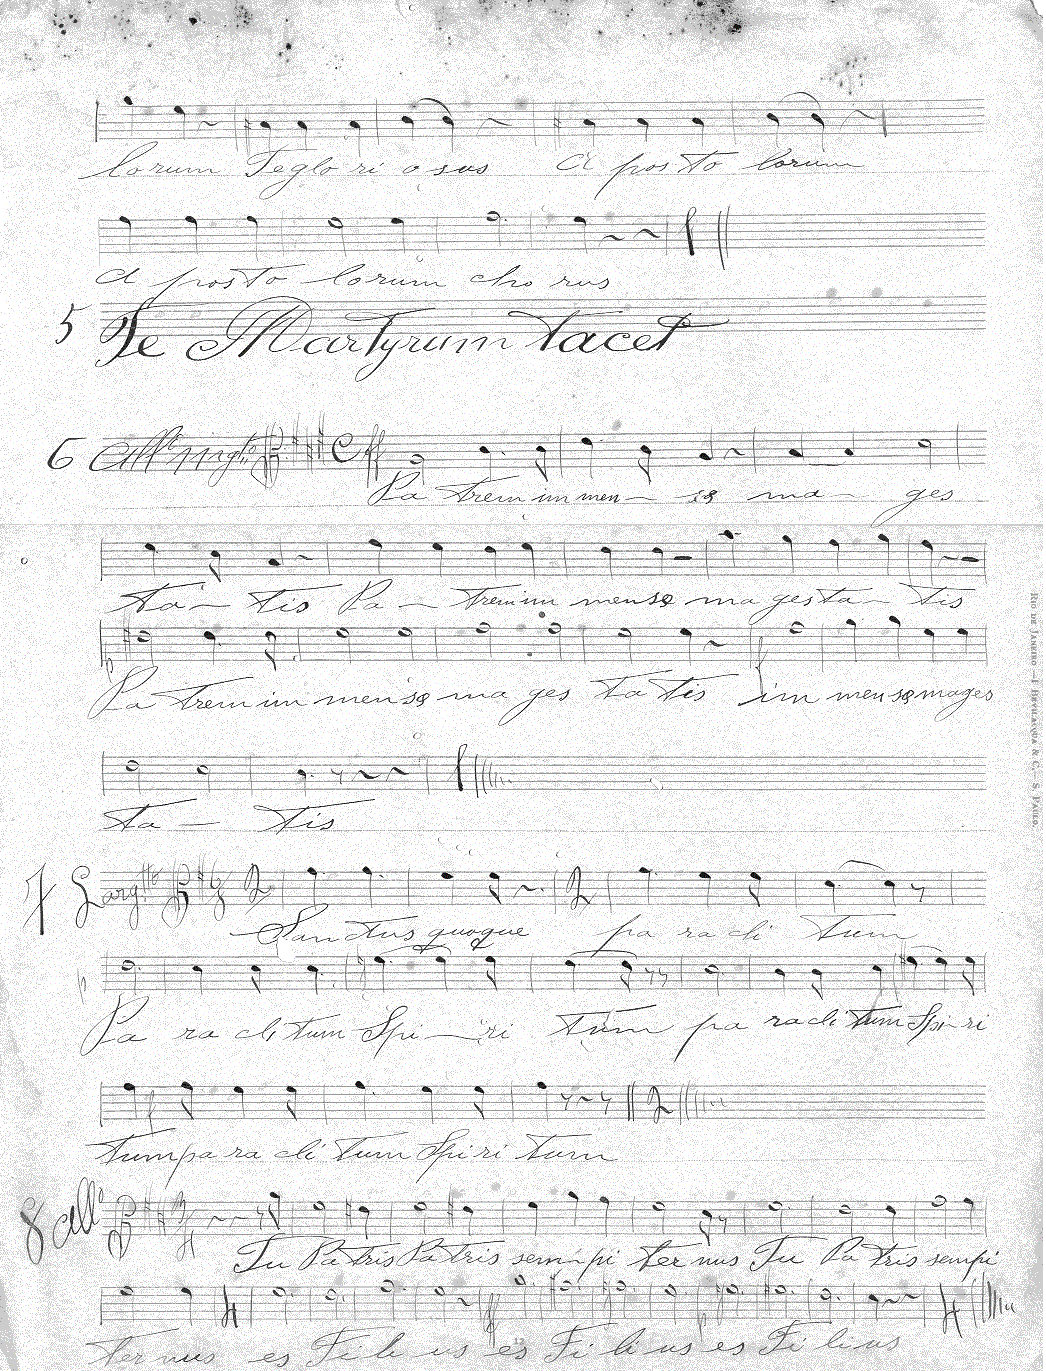 lorum Te glo ri o sus a pos to lorum
a pos to lorum cho rus
5 Te Martyrum tacet
6 All.º
Pa trem im men — se ma — ges
ta — tis Pa — trem im mense ma gesta — tis
p
Pa trem im mense ma ges ta tis im mense mages
ta — tis
7 Larg.tto 2 2
Sanctus quoque pa ra cli tum
p
Pa ra cli tum Spi — ri tum pa racli tum Spi ri
tum pa ra cli tum Spi ri tum 2
8 All.º
Tu Patris Patris sem pi ter nus Tu Pa tris sempi
4 4
ter nus es Fi li us es Fi li us es Fi li us
12
RIO DE JANEIRO — E. BEVILACQUA & C. — S. PAULO.